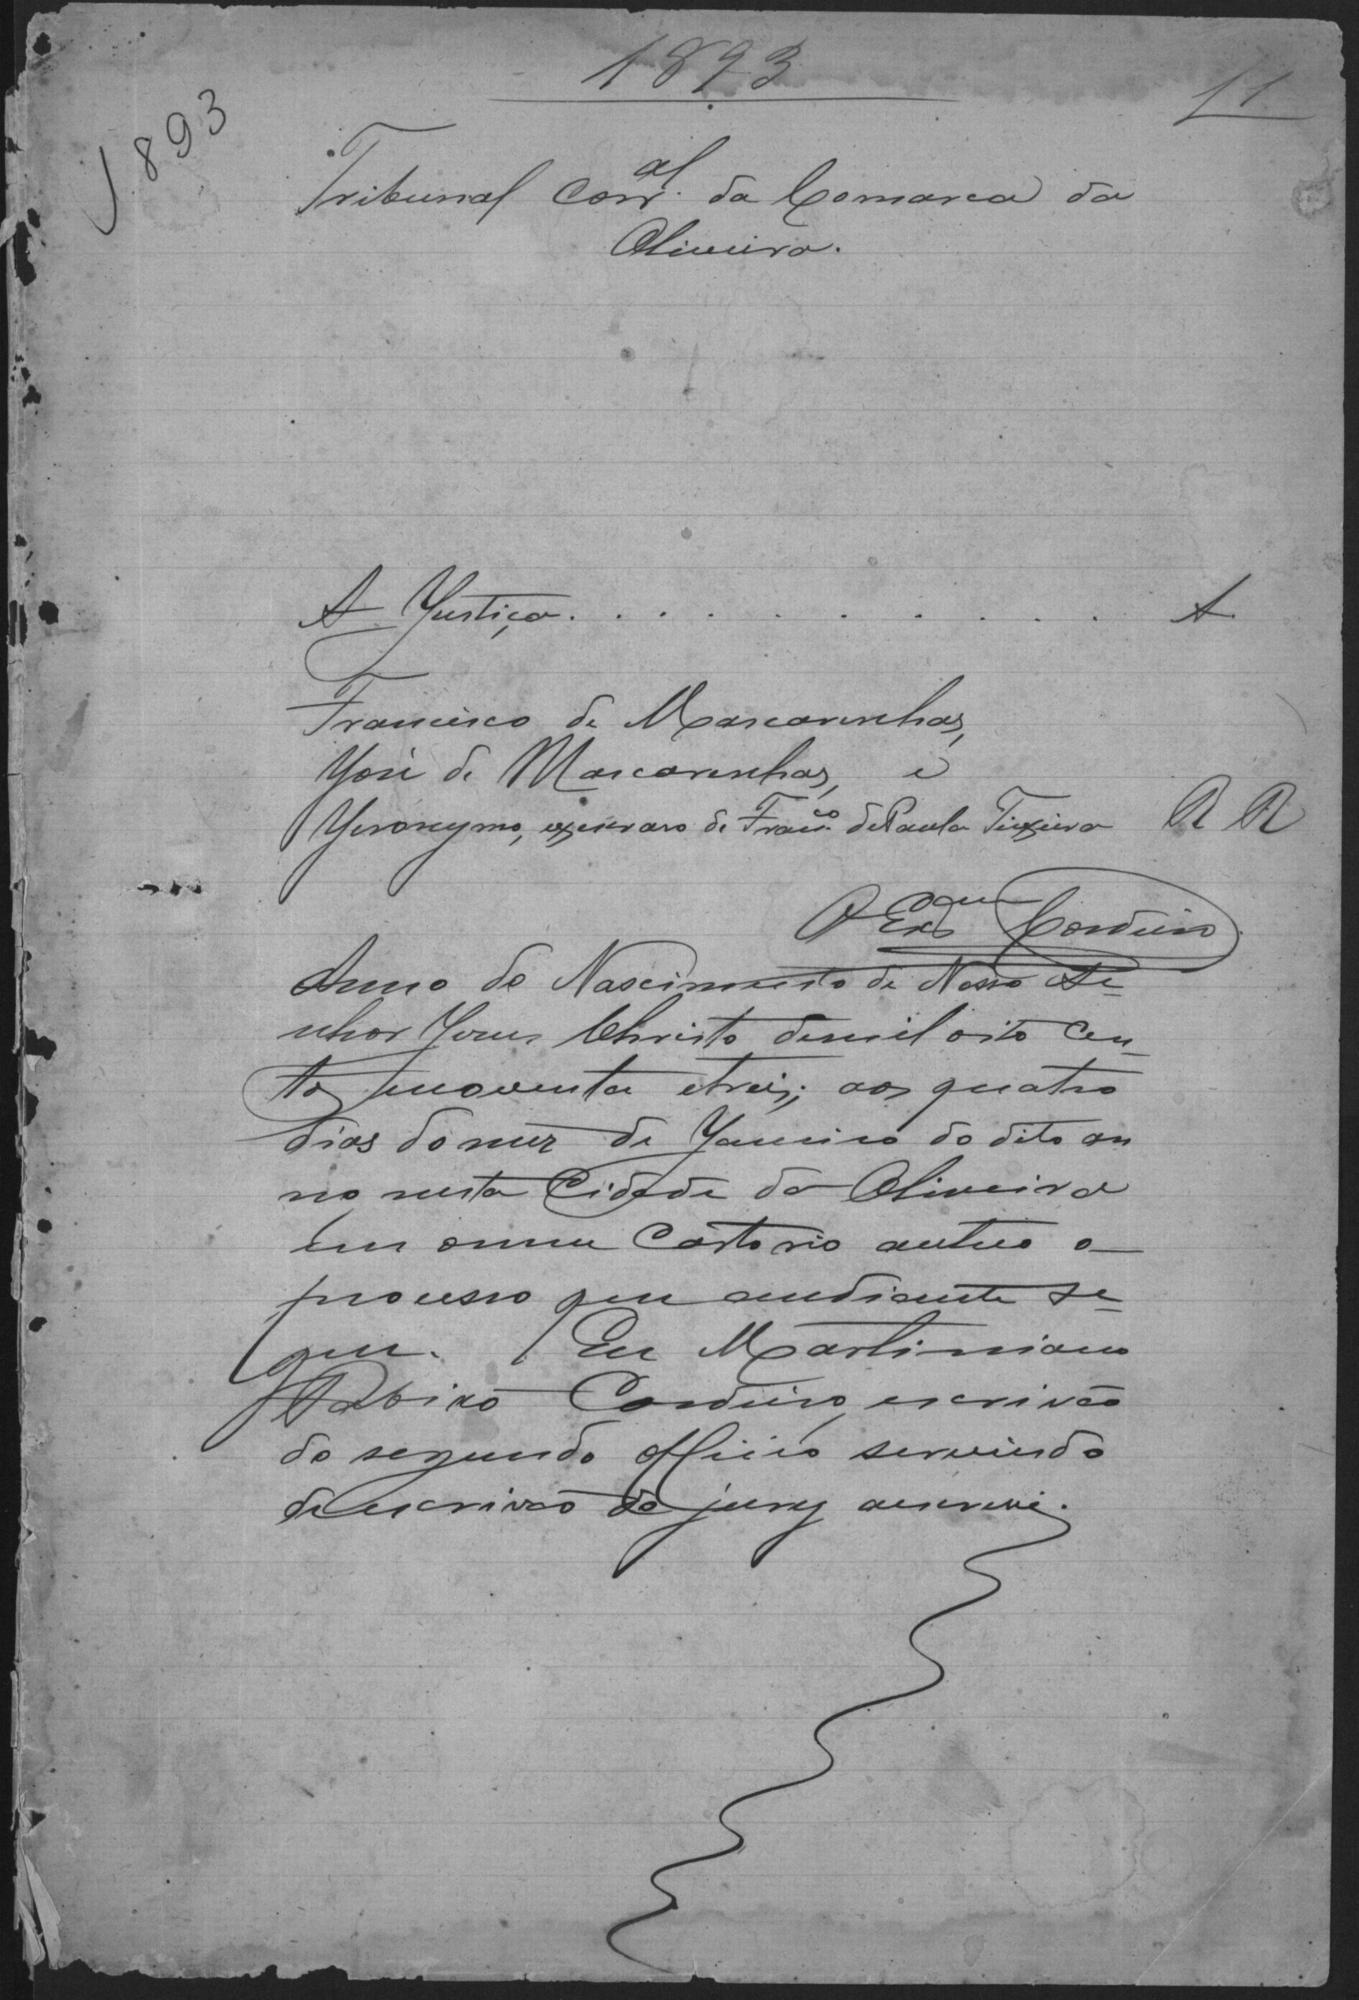 1893
11
1893
Tribunal Corr.al da Comarca da
Oliveira.
A Justiça. . . . . . . . . . A
Francisco de Mascarenhas,
José de Mascarenhas, e
Jeronymo, exescravo de Fran.co de Paula Teixeira R R
O Escam Cordeiro
Anno do Nascimento de Nosso Se-
nhor Jesus Christo de mil oito cen-
tos, enoventa etreis; aos quatro
dias do mez de Janeiro do dito an
no nesta Cidade da Oliveira
em o meu Cartorio autuo o
processo que an diante se-
gue. Eu Martiniano
Cordeiro, escrivão
do segundo Officio servindo
de escrivão do jury o escrevi.